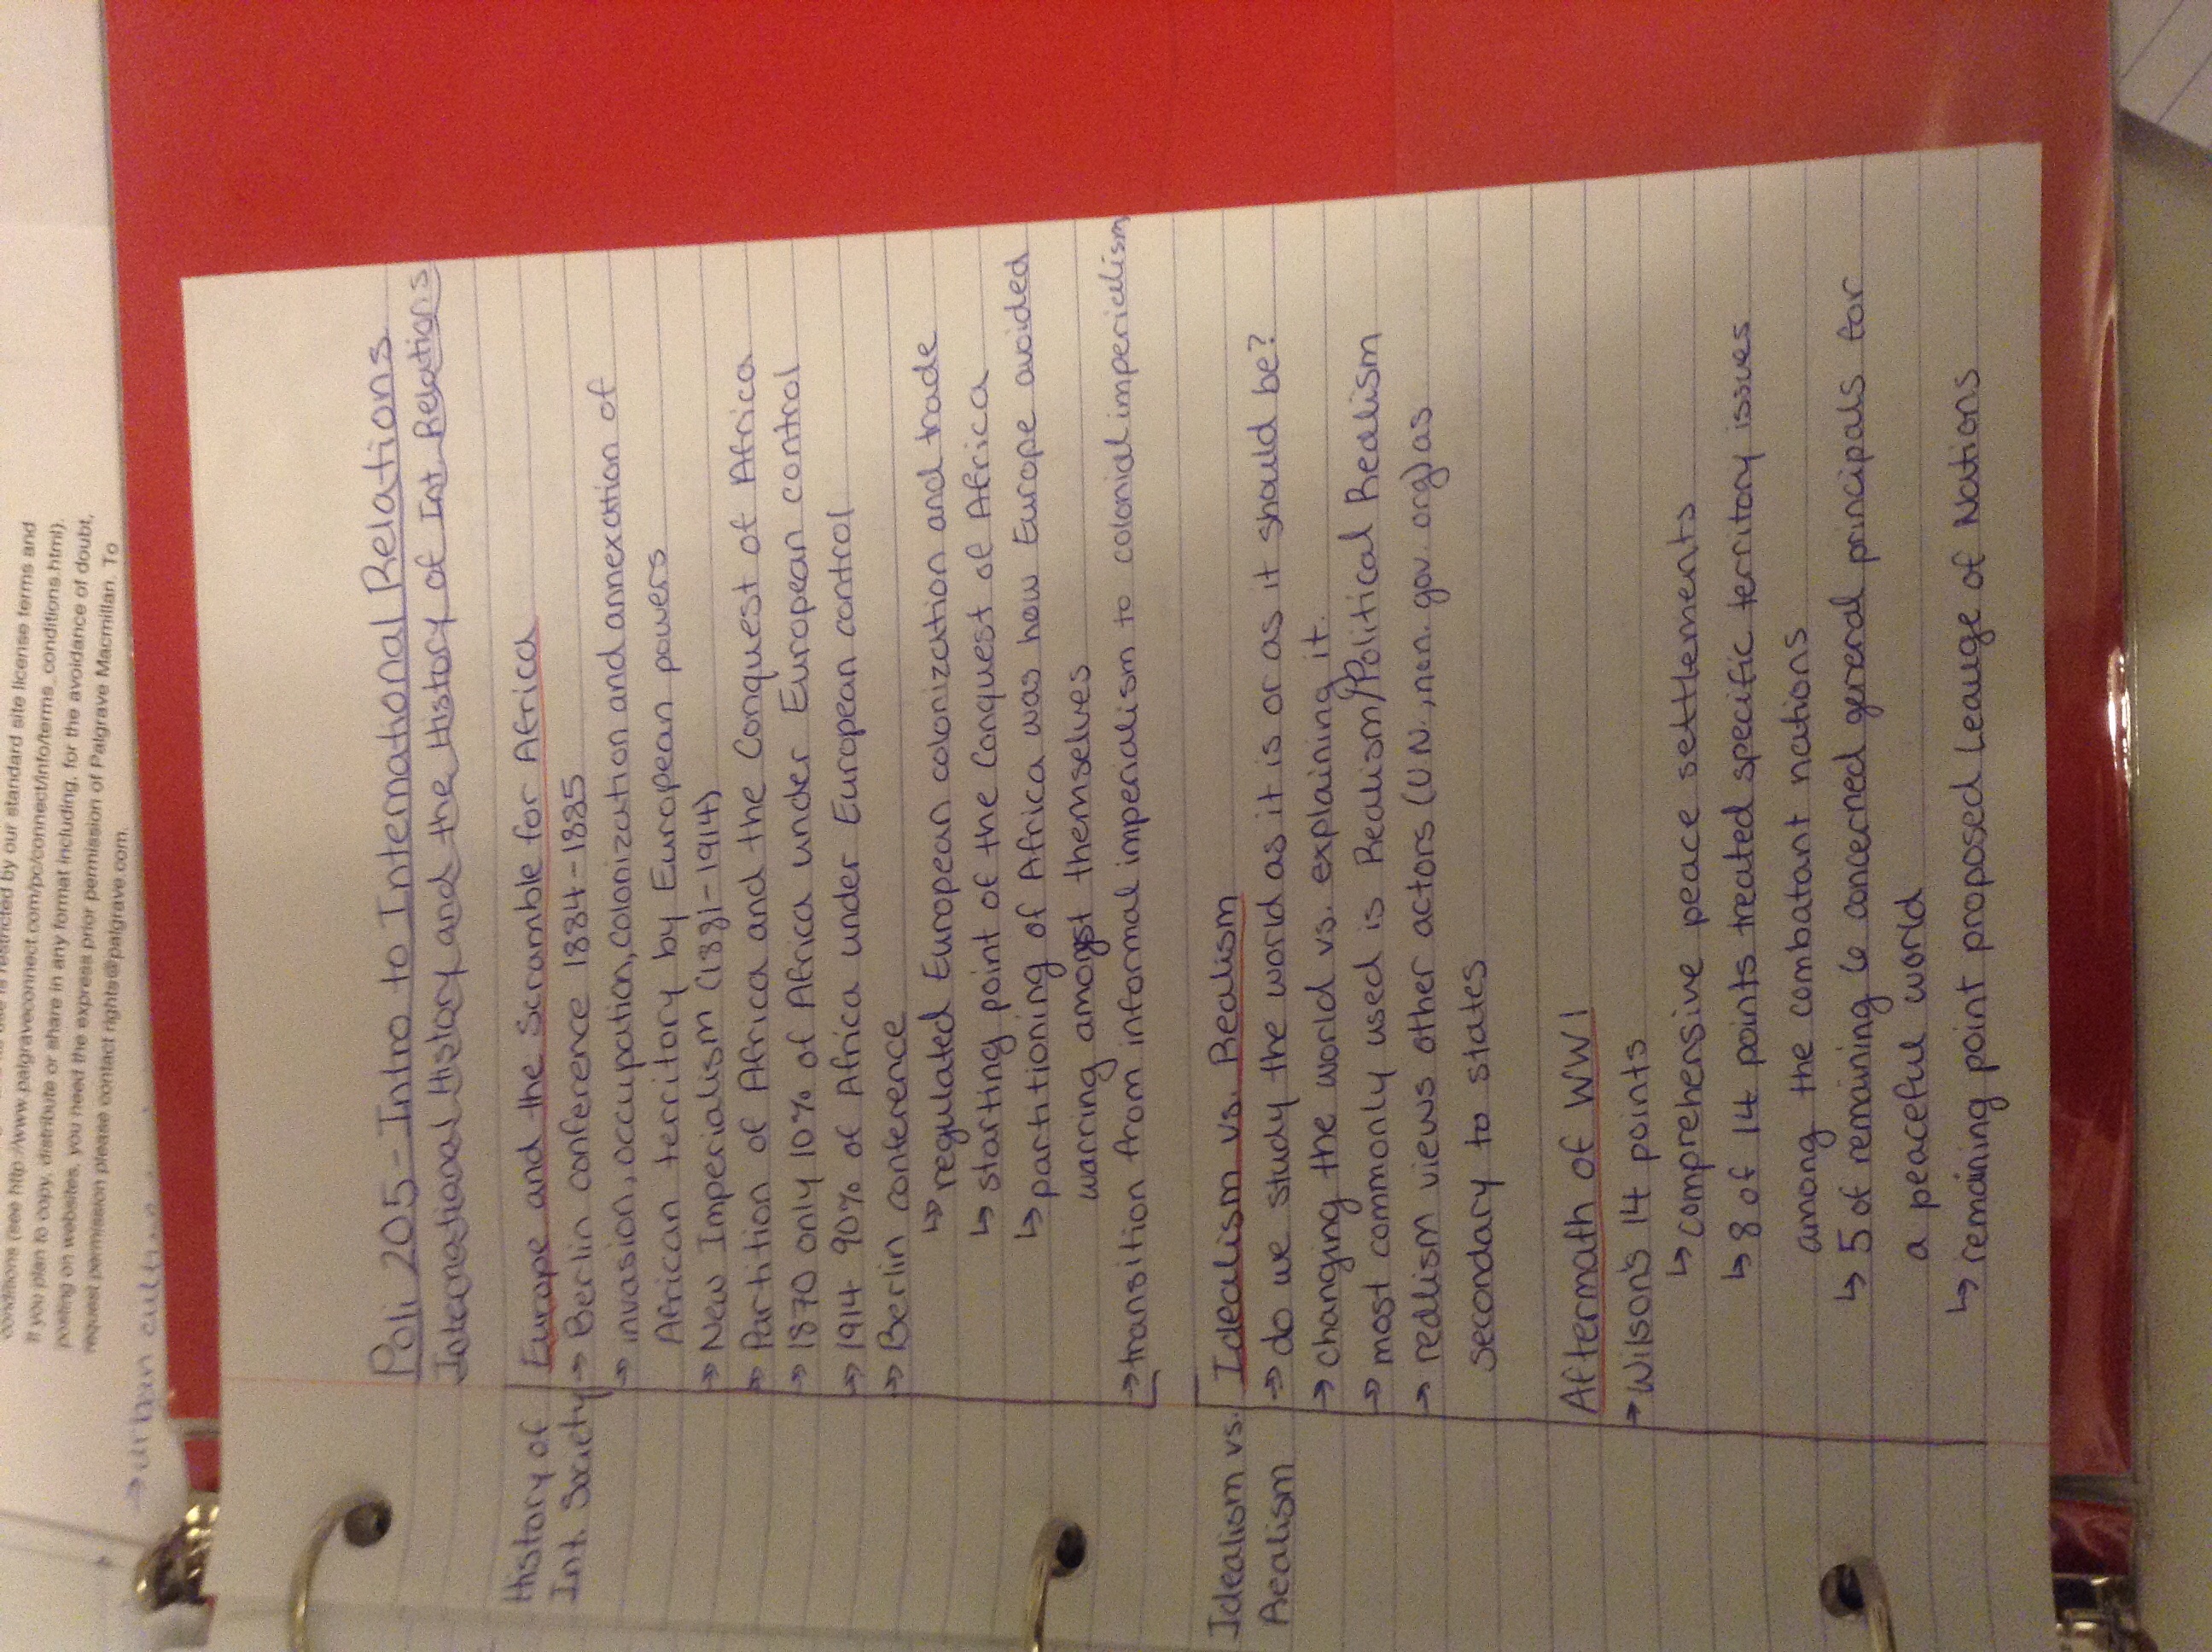 conditions (see http://www.palgraveconnect.com/pc/connect/info/terms_conditions.html).
If you plan to copy, distribute or share in any format including, for the avoidance of doubt,
posting on websites, you need the express prior permission of Palgrave Macmillan. To
request permission please contact rights@palgrave.com.
→ urban culture
Poli 205 - Intro to International Relations
International History and the History of Int Relations
History of
Int. Society
Europe and the Scramble for Africa
→ Berlin conference 1884-1885
→ invasion, occupation, colonization and annexation of
African territory by European powers
→ New Imperialism (1881-1914)
→ Partition of Africa and the Conquest of Africa
→ 1870 only 10% of Africa under European control
→ 1914 90% of Africa under European control
→ Berlin conference
↳ regulated European colonization and trade
↳ starting point of the Conquest of Africa
↳ partitioning of Africa was how Europe avoided
warring amongst themselves
→ transition from informal imperialism to colonial imperialism
Idealism vs.
Realism
Idealism vs. Realism
→ do we study the world as it is or as it should be?
→ changing the world vs. explaining it.
→ most commonly used is Realism/Political Realism
→ realism views other actors (U.N., non. gov org) as
secondary to states
Aftermath of WW1
→ Wilson's 14 points
↳ comprehensive peace settlements
↳ 8 of 14 points treated specific territory issues
among the combatant nations
↳ 5 of remaining 6 concerned general principals for
a peaceful world
↳ remaining point proposed Leauge of Nations